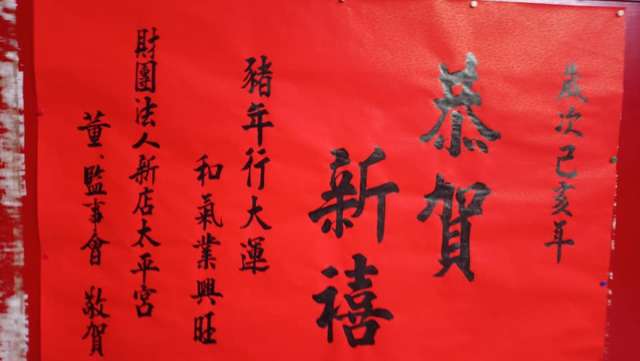 歲次己亥年
恭賀
新禧
豬年行大運
和氣業興旺
財團法人新店太平宮
董、監事會 敬賀